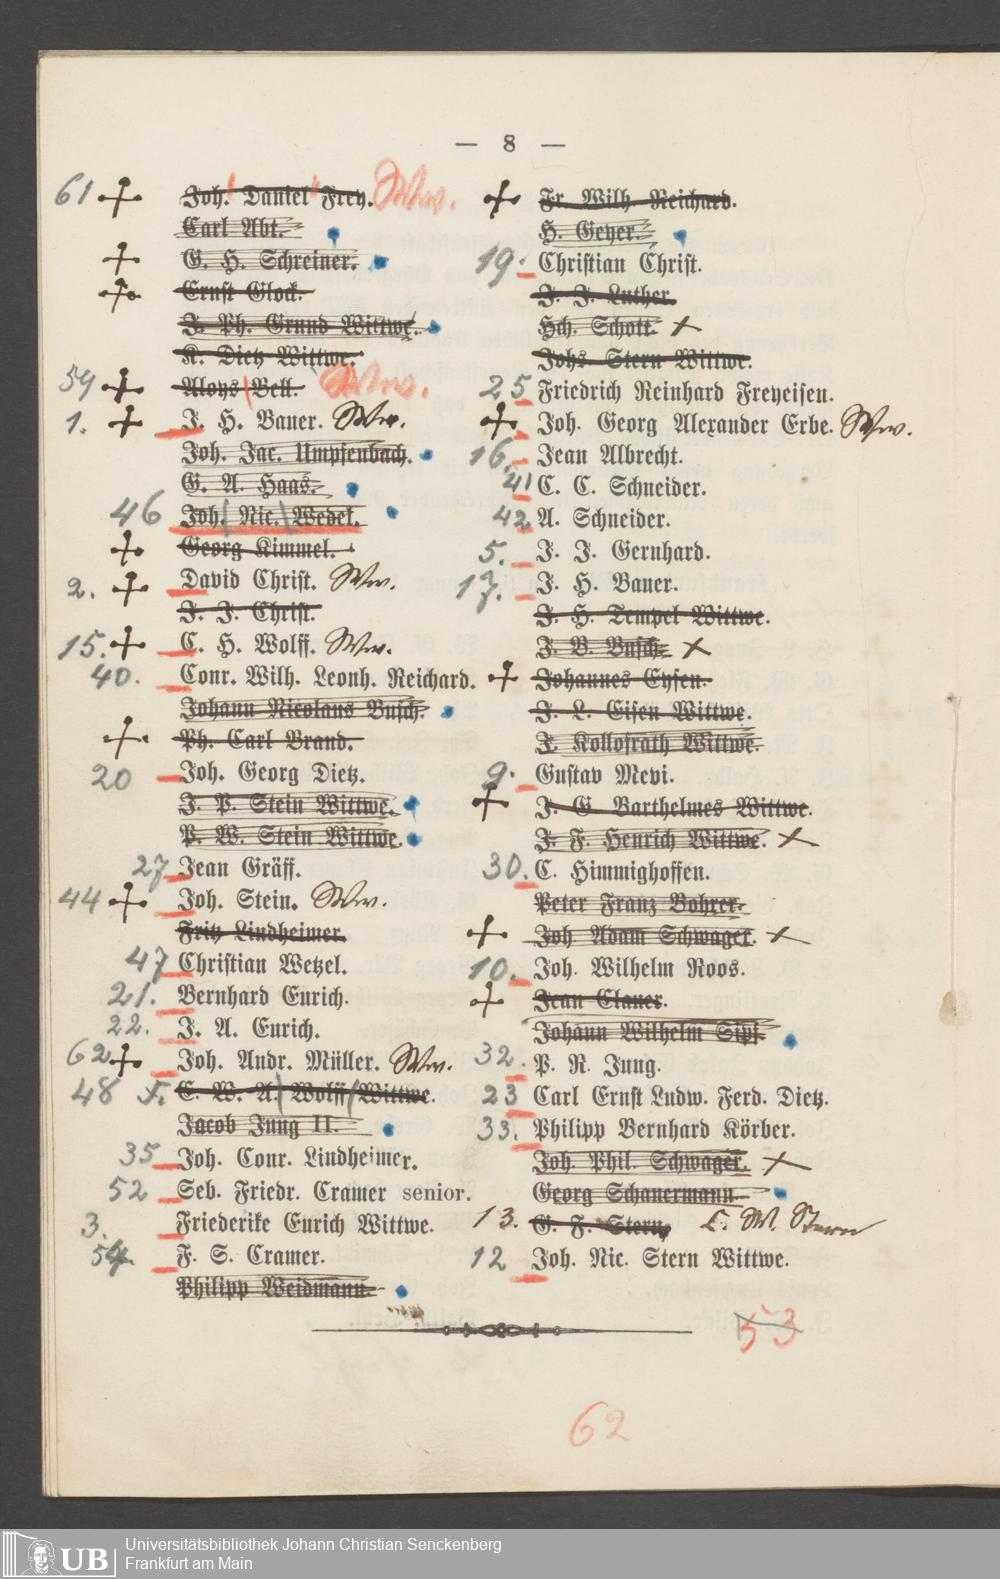 — 8 —
61 Joh. Daniel Frey. Ww.
Carl Abt.
G. H. Schreiner.
Ernst Glock.
J. Ph. Grund Wittwe.
K. Dietz Wittwe.
59 Aloys Bell. Ww.
1. J. H. Bauer. Ww.
Joh. Jac. Umpfenbach.
G. A. Haas.
46 Joh. Nic. Wedel.
Georg Kimmel.
2. David Christ. Ww.
J. F. Christ.
15. C. H. Wolff. Ww.
40. Conr. Wilh. Leonh. Reichard.
Johann Nicolaus Busch.
Ph. Carl Brand.
20 Joh. Georg Dietz.
J. P. Stein Wittwe.
P. W. Stein Wittwe.
27 Jean Gräff.
44 Joh. Stein. Ww.
Fritz Lindheimer.
47 Christian Wetzel.
21. Bernhard Eurich.
22. J. A. Eurich.
62 Joh. Andr. Müller. Ww.
48 F. C. W. A. Wolff Wittwe.
Jacob Jung II.
35 Joh. Conr. Lindheimer.
52 Seb. Friedr. Cramer senior.
3. Friederike Eurich Wittwe.
54. F. S. Cramer.
Philipp Weidmann.
Fr. Wilh. Reichard.
H. Geyer.
19. Christian Christ.
J. J. Luther.
Hch. Schott.
Johs. Stern Wittwe.
25 Friedrich Reinhard Freyeisen.
Joh. Georg Alexander Erbe. Ww.
16. Jean Albrecht.
41 C. C. Schneider.
42 A. Schneider.
5. J. J. Gernhard.
17. J. H. Bauer.
J. H. Tempel Wittwe.
J. B. Busch.
Johannes Eysen.
J. L. Eisen Wittwe.
F. Kollosrath Wittwe.
9. Gustav Mevi.
J. G. Barthelmes Wittwe.
J. F. Henrich Wittwe.
30. C. Himmighoffen.
Peter Franz Bohrer.
Joh Adam Schwager.
10. Joh. Wilhelm Roos.
Jean Clauer.
Johann Wilhelm Sipf.
32. P. R. Jung.
23 Carl Ernst Ludw. Ferd. Dietz.
33. Philipp Bernhard Körber.
Joh. Phil. Schwager.
Georg Schauermann.
13. G. F. Stern, C. W. Stern
12 Joh. Nic. Stern Wittwe.
53
62
UB
Universitätsbibliothek Johann Christian Senckenberg
Frankfurt am Main